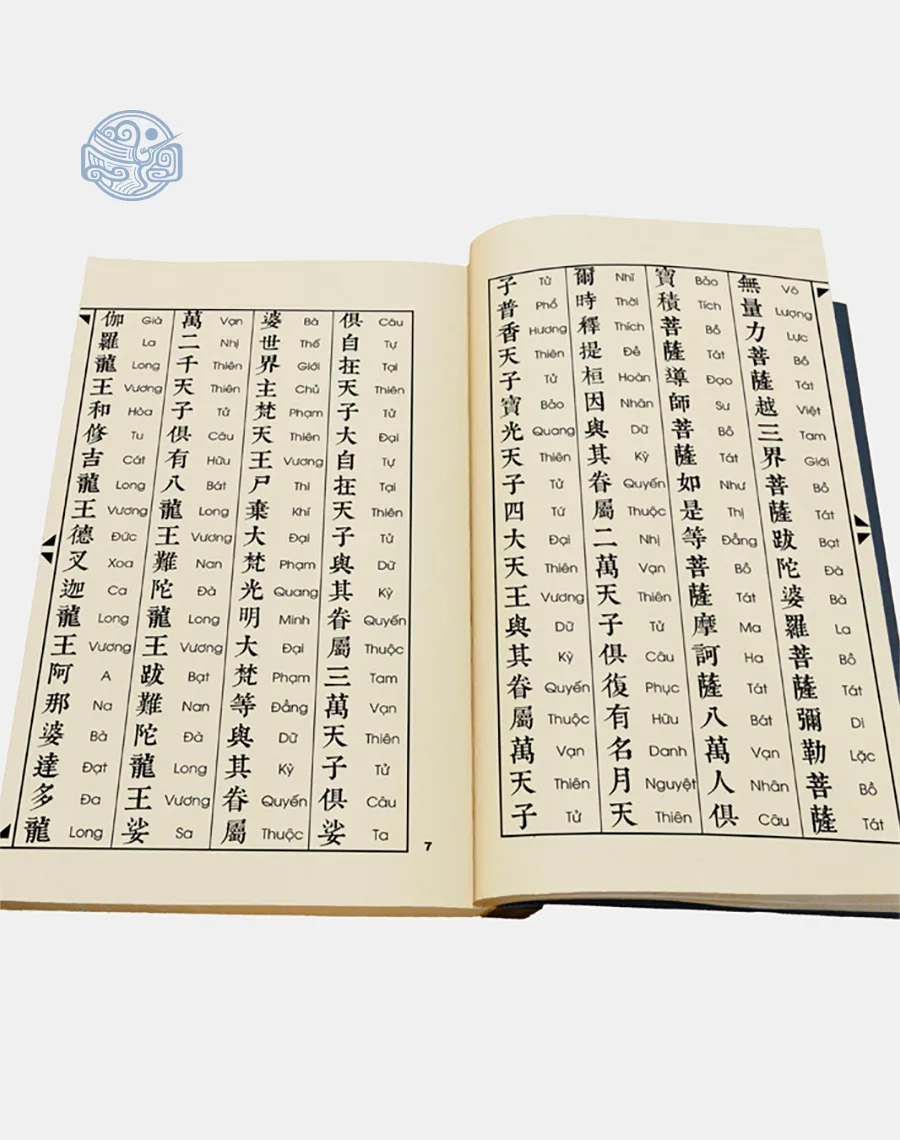 無量力菩薩越三界菩薩跋陀婆羅菩薩彌勒菩薩
Vô Lượng Lực Bồ Tát Việt Tam Giới Bồ Tát Bạt Đà Bà La Bồ Tát Di Lặc Bồ Tát
寶積菩薩導師菩薩如是等菩薩摩訶薩八萬人俱
Bảo Tích Bồ Tát Đạo Sư Bồ Tát Như Thị Đẳng Bồ Tát Ma Ha Tát Bát Vạn Nhân Câu
爾時釋提桓因與其眷屬二萬天子俱復有名月天
Nhĩ Thời Thích Đề Hoàn Nhân Dữ Kỳ Quyến Thuộc Nhị Vạn Thiên Tử Câu Phục Hữu Danh Nguyệt Thiên
子普香天子寶光天子四大天王與其眷屬萬天子
Tử Phổ Hương Thiên Tử Bảo Quang Thiên Tử Tứ Đại Thiên Vương Dữ Kỳ Quyến Thuộc Vạn Thiên Tử
俱自在天子大自在天子與其眷屬三萬天子俱娑
Câu Tự Tại Thiên Tử Đại Tự Tại Thiên Tử Dữ Kỳ Quyến Thuộc Tam Vạn Thiên Tử Câu Ta
婆世界主梵天王尸棄大梵光明大梵等與其眷屬
Bà Thế Giới Chủ Phạm Thiên Vương Thi Khí Đại Phạm Quang Minh Đại Phạm Đẳng Dữ Kỳ Quyến Thuộc
萬二千天子俱有八龍王難陀龍王跋難陀龍王娑
Vạn Nhị Thiên Thiên Tử Câu Hữu Bát Long Vương Nan Đà Long Vương Bạt Nan Đà Long Vương Sa
伽羅龍王和修吉龍王德叉迦龍王阿那婆達多龍
Già La Long Vương Hòa Tu Cát Long Vương Đức Xoa Ca Long Vương A Na Bà Đạt Đa Long
7